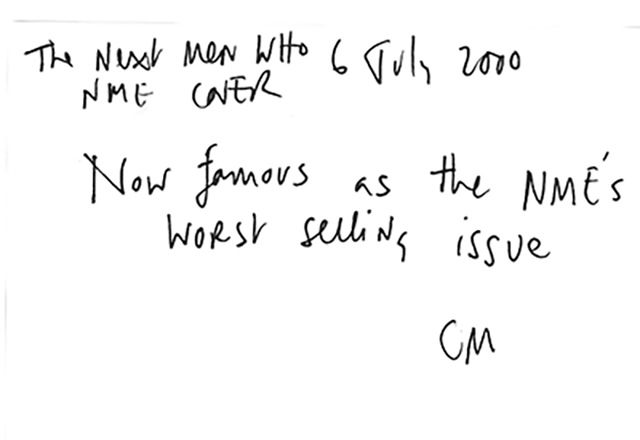 The Next Men Who 6 July 2000
NME COVER
Now famous as the NME's
worst selling issue
CM